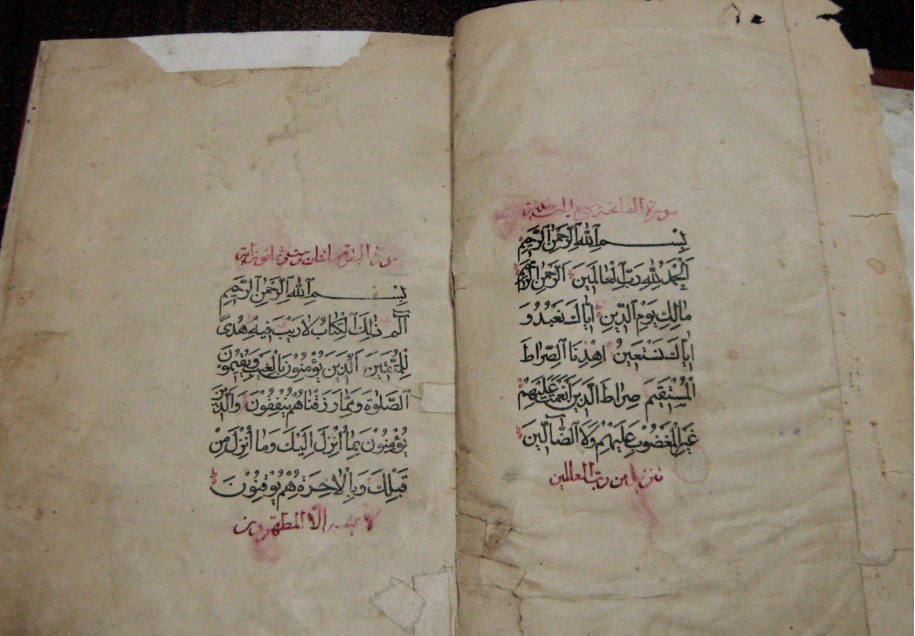 سورة الفاتحة سبع ايات
بِسْمِ اللهِ الرَّحْمٰنِ الرَّحِيْمِ
اَلْحَمْدُ لِلّٰهِ رَبِّ الْعَالَمِيْنَ الرَّحْمٰنِ الرَّحِيْمِ
مَالِكِ يَوْمِ الدِّيْنِ اِيَّاكَ نَعْبُدُ وَ
اِيَّاكَ نَسْتَعِيْنُ اِهْدِنَا الصِّرَاطَ
الْمُسْتَقِيْمَ صِرَاطَ الَّذِيْنَ اَنْعَمْتَ عَلَيْهِمْ
غَيْرِ الْمَغْضُوْبِ عَلَيْهِمْ وَلَا الضَّآلِّيْنَ
تنزيل من رب العالمين
سورة البقرة مائتان وست وثمانون
بِسْمِ اللهِ الرَّحْمٰنِ الرَّحِيْمِ
الٓمٓ ذٰلِكَ الْكِتَابُ لَا رَيْبَ فِيْهِ هُدًى
لِلْمُتَّقِيْنَ الَّذِيْنَ يُؤْمِنُوْنَ بِالْغَيْبِ وَيُقِيْمُوْنَ
الصَّلٰوةَ وَمِمَّا رَزَقْنَاهُمْ يُنْفِقُوْنَ وَالَّذِيْنَ
يُؤْمِنُوْنَ بِمَا اُنْزِلَ اِلَيْكَ وَمَا اُنْزِلَ مِنْ
قَبْلِكَ وَبِالْاٰخِرَةِ هُمْ يُوْقِنُوْنَ
لا يمسه الا المطهرون